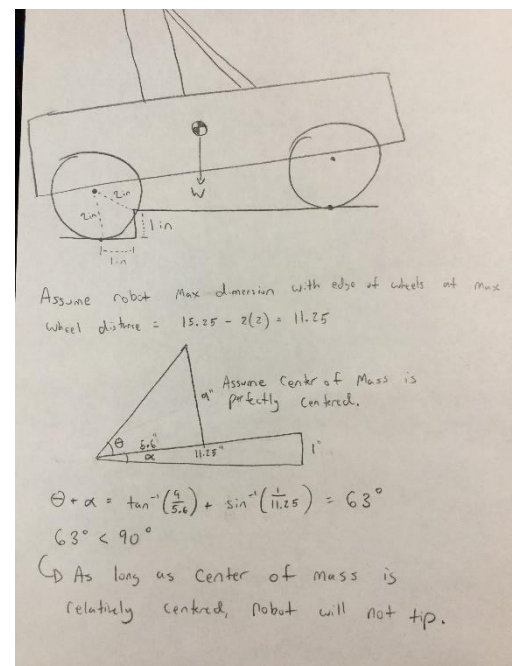 W
2in
2in
1in
1in
Assume robot max dimension with edge of wheels at max
wheel distance = 15.25 - 2(2) = 11.25
9"
Assume Center of Mass is
perfectly centered.
θ
5.6"
α
11.25"
1"
θ + α = tan⁻¹(9/5.6) + sin⁻¹(1/11.25) = 63°
63° < 90°
As long as center of mass is
relatively centered, robot will not tip.